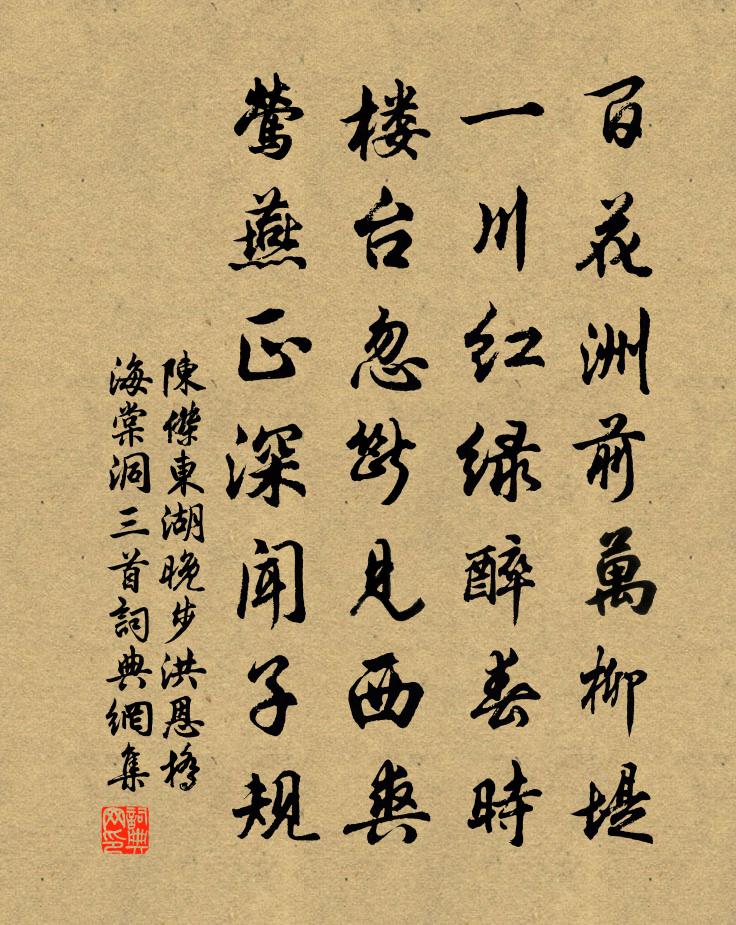 百花洲前萬柳堤
一川红绿醉春時
楼台忽断見西爽
莺燕正深闻子規
陳傑東湖晚步洪恩橋
海棠洞三首詞典網集
詞典
网印